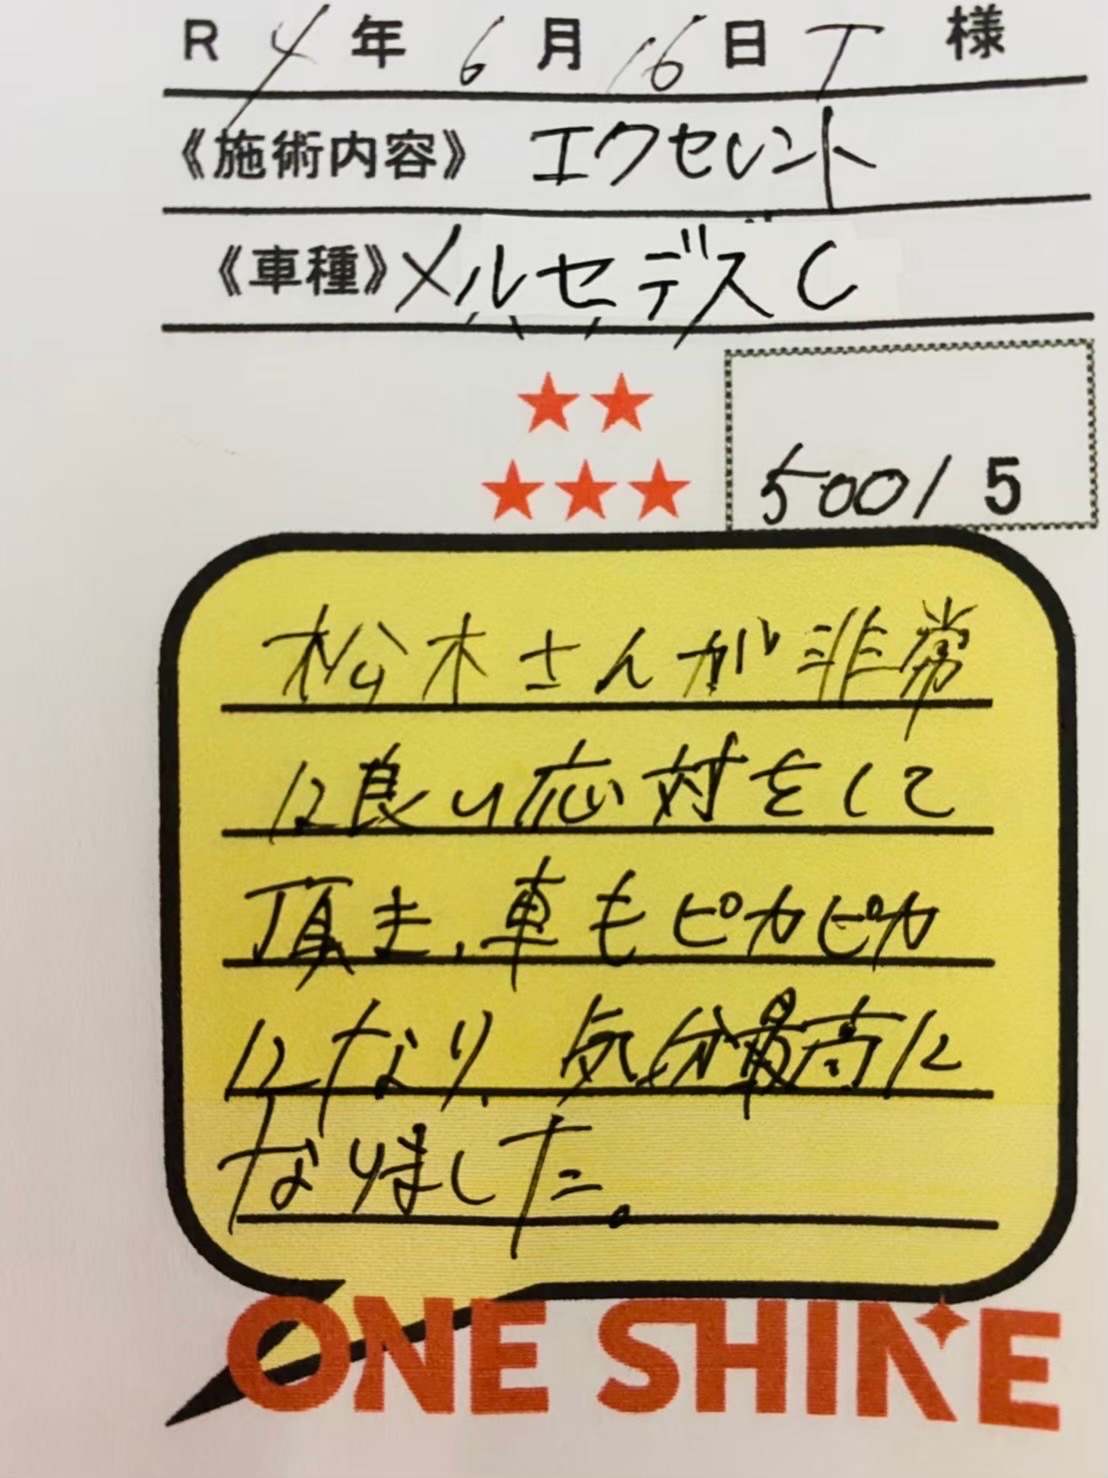 R 4 年 6 月 16 日 T 様
《施術内容》 エクセレント
《車種》メルセデス C
★★
★★★ 500 / 5
松木さんが非常
に良い応対をして
頂き、車もピカピカ
になり、気分最高に
なりました。
ONE SHINE